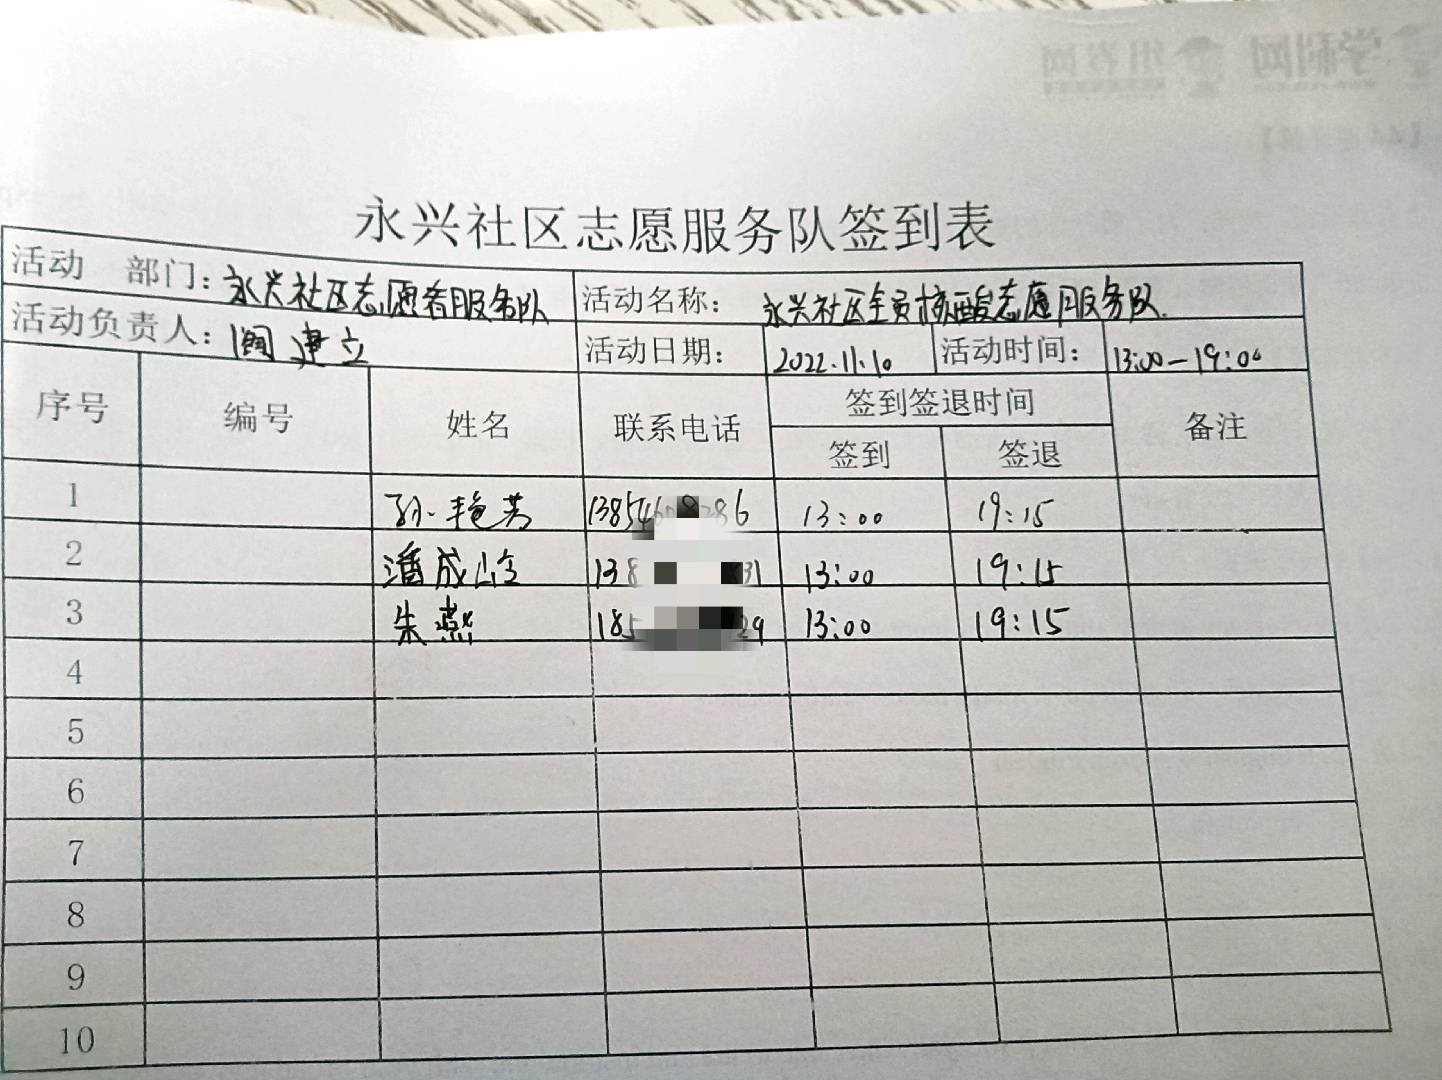 永兴社区志愿服务队签到表
活动 部门：永兴社区志愿者服务队 活动名称： 永兴社区全员核酸志愿服务队.
活动负责人： 建立 活动日期： 2022.11.10 活动时间： 13:00-19:00
序号 编号 姓名 联系电话 签到签退时间 备注
签到 签退
1 孙艳芳 13:00 19:15
2 潘成岭 13:00 19:15
3 朱燕 13:00 19:15
4
5
6
7
8
9
10